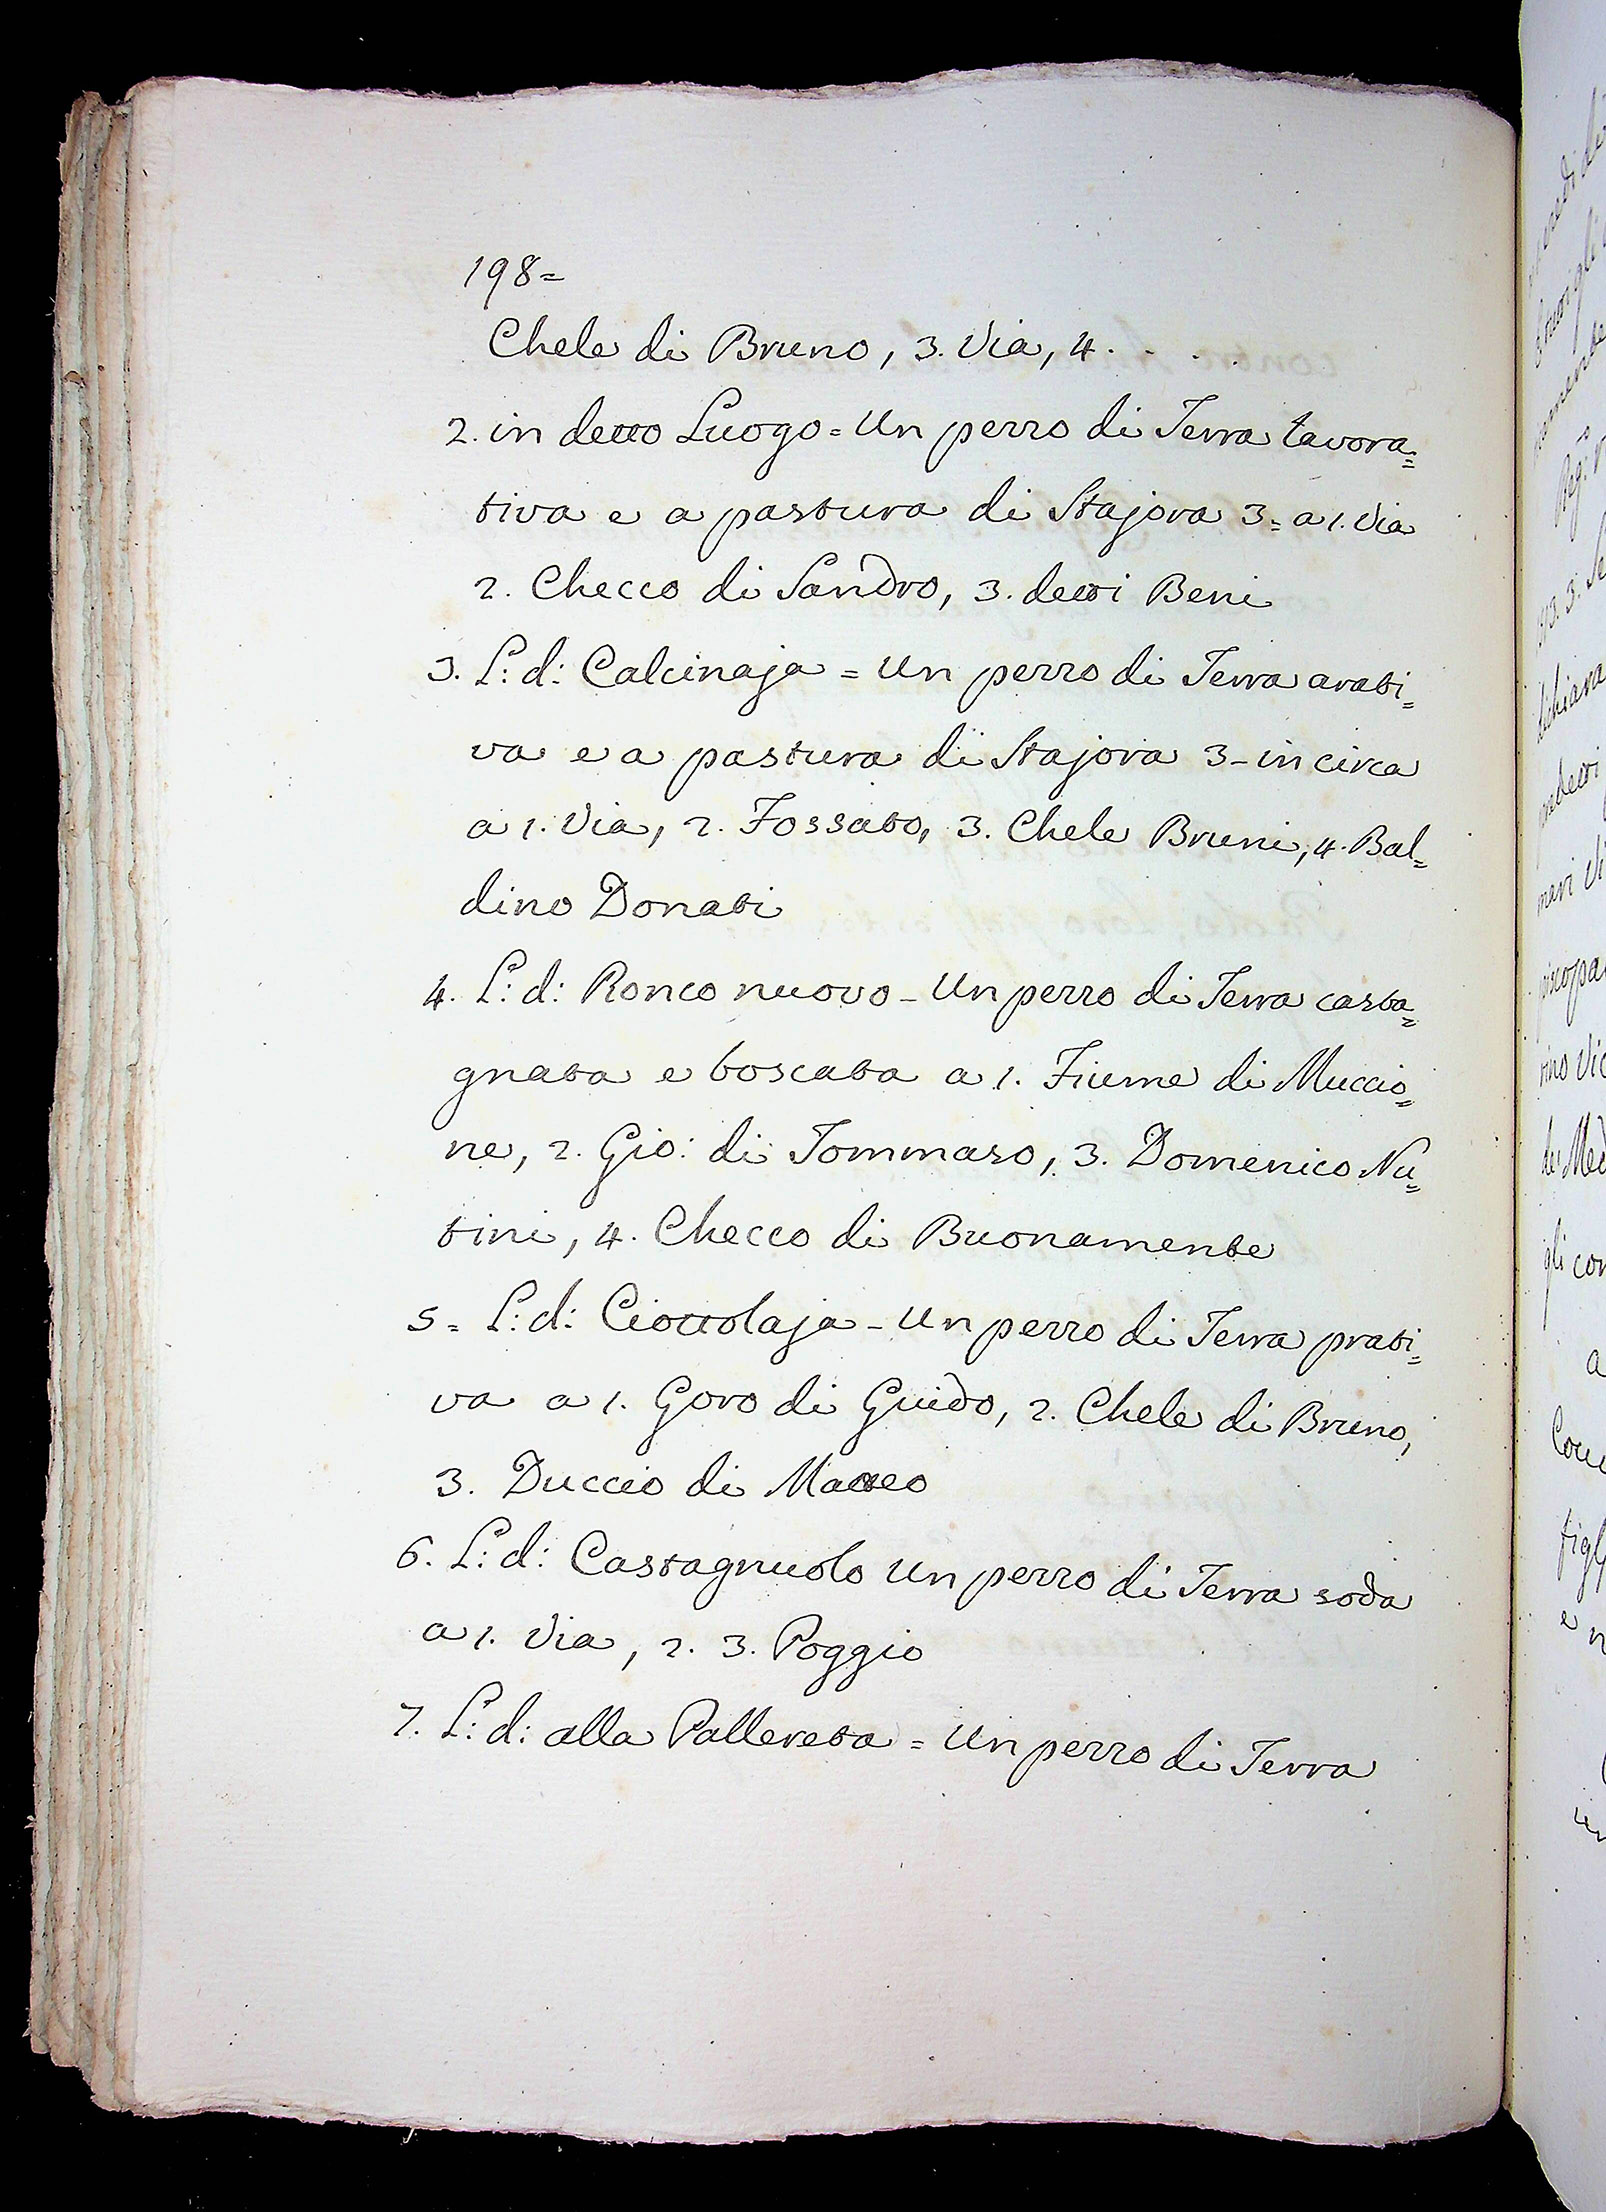 198=
Chele di Bruno, 3. Via, 4. . . .
2. in detto Luogo = Un pezzo di Terra lavora=
tiva e a pastura di Stajora 3= a 1. Via
2. Checco di Sandro, 3. detti Beni
3. L: d: Calcinaja = Un pezzo di Terra arati=
va e a pastura di Stajora 3 - in circa
a 1. Via, 2. Fossato, 3. Chele Bruni, 4. Bal=
dino Donati
4. L: d: Ronco nuovo - Un pezzo di Terra casta=
gnata e boscata a 1. Fiume di Muccio=
ne, 2. Gio: di Tommaso, 3. Domenico Nu=
tini, 4. Checco di Buonamente
5= L: d: Ciottolaja - Un pezzo di Terra prati=
va a 1. Goro di Guido, 2. Chele di Bruno,
3. Duccio di Matteo
6. L: d: Castagnuolo Un pezzo di Terra soda
a 1. Via, 2. 3. Poggio
7. L: d: alla Pallereta = Un pezzo di Terra